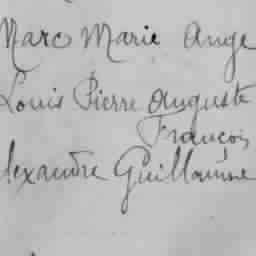 Marc Marie Ange
Louis Pierre Auguste
François
lexandre Guillaume